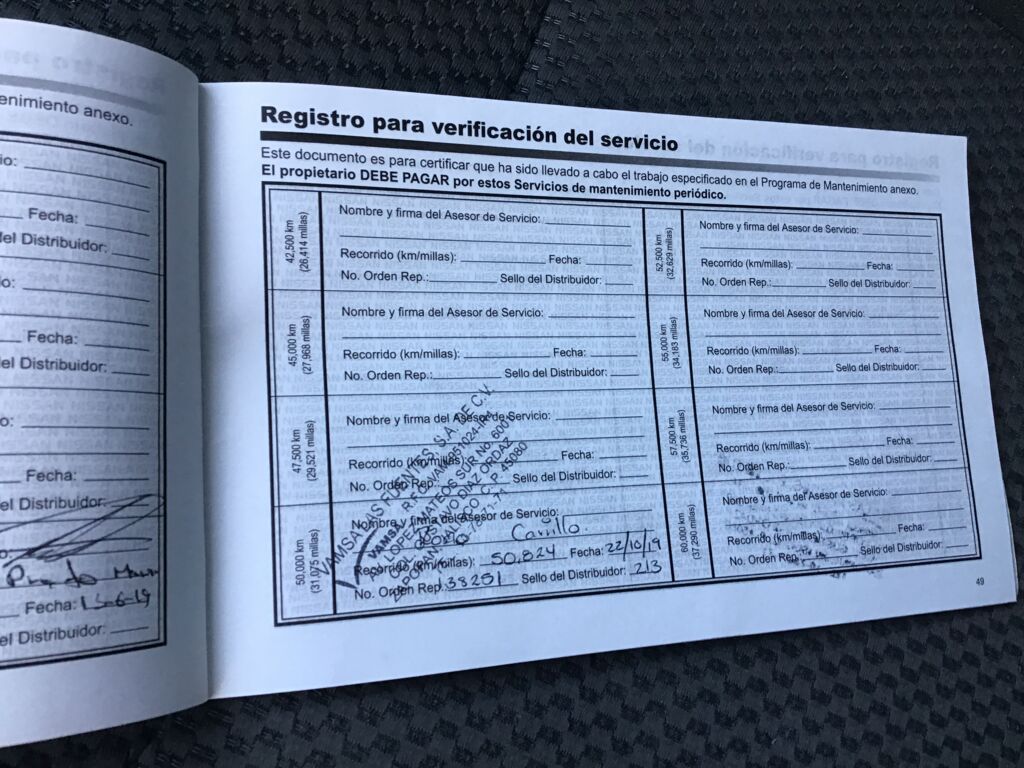 enimiento anexo.
io:
Fecha:
el Distribuidor:
o:
Fecha:
el Distribuidor:
o:
Fecha:
el Distribuidor:
o:
Fecha: 13-6-19
el Distribuidor:
Registro para verificación del servicio
Este documento es para certificar que ha sido llevado a cabo el trabajo especificado en el Programa de Mantenimiento anexo.
El propietario DEBE PAGAR por estos Servicios de mantenimiento periódico.
42,500 km
(26,414 millas)
Nombre y firma del Asesor de Servicio:
Recorrido (km/millas): Fecha:
No. Orden Rep.: Sello del Distribuidor:
45,000 km
(27,968 millas)
Nombre y firma del Asesor de Servicio:
Recorrido (km/millas): Fecha:
No. Orden Rep.: Sello del Distribuidor:
47,500 km
(29,521 millas)
Nombre y firma del Asesor de Servicio:
Recorrido (km/millas): Fecha:
No. Orden Rep.: Sello del Distribuidor:
50,000 km
(31,075 millas)
Nombre y firma del Asesor de Servicio:
Carrillo
Recorrido (km/millas): 50,824 Fecha: 22/10/19
No. Orden Rep.: 38251 Sello del Distribuidor: 213
S.A. DE C.V.
LOPEZ MATEOS SUR No.
GUSTAVO DIAZ ORDAZ
C.P. 45080
52,500 km
(32,629 millas)
Nombre y firma del Asesor de Servicio:
Recorrido (km/millas): Fecha:
No. Orden Rep.: Sello del Distribuidor:
55,000 km
(34,183 millas)
Nombre y firma del Asesor de Servicio:
Recorrido (km/millas): Fecha:
No. Orden Rep.: Sello del Distribuidor:
57,500 km
(35,736 millas)
Nombre y firma del Asesor de Servicio:
Recorrido (km/millas): Fecha:
No. Orden Rep.: Sello del Distribuidor:
60,000 km
(37,290 millas)
Nombre y firma del Asesor de Servicio:
Recorrido (km/millas): Fecha:
No. Orden Rep.: Sello del Distribuidor:
49